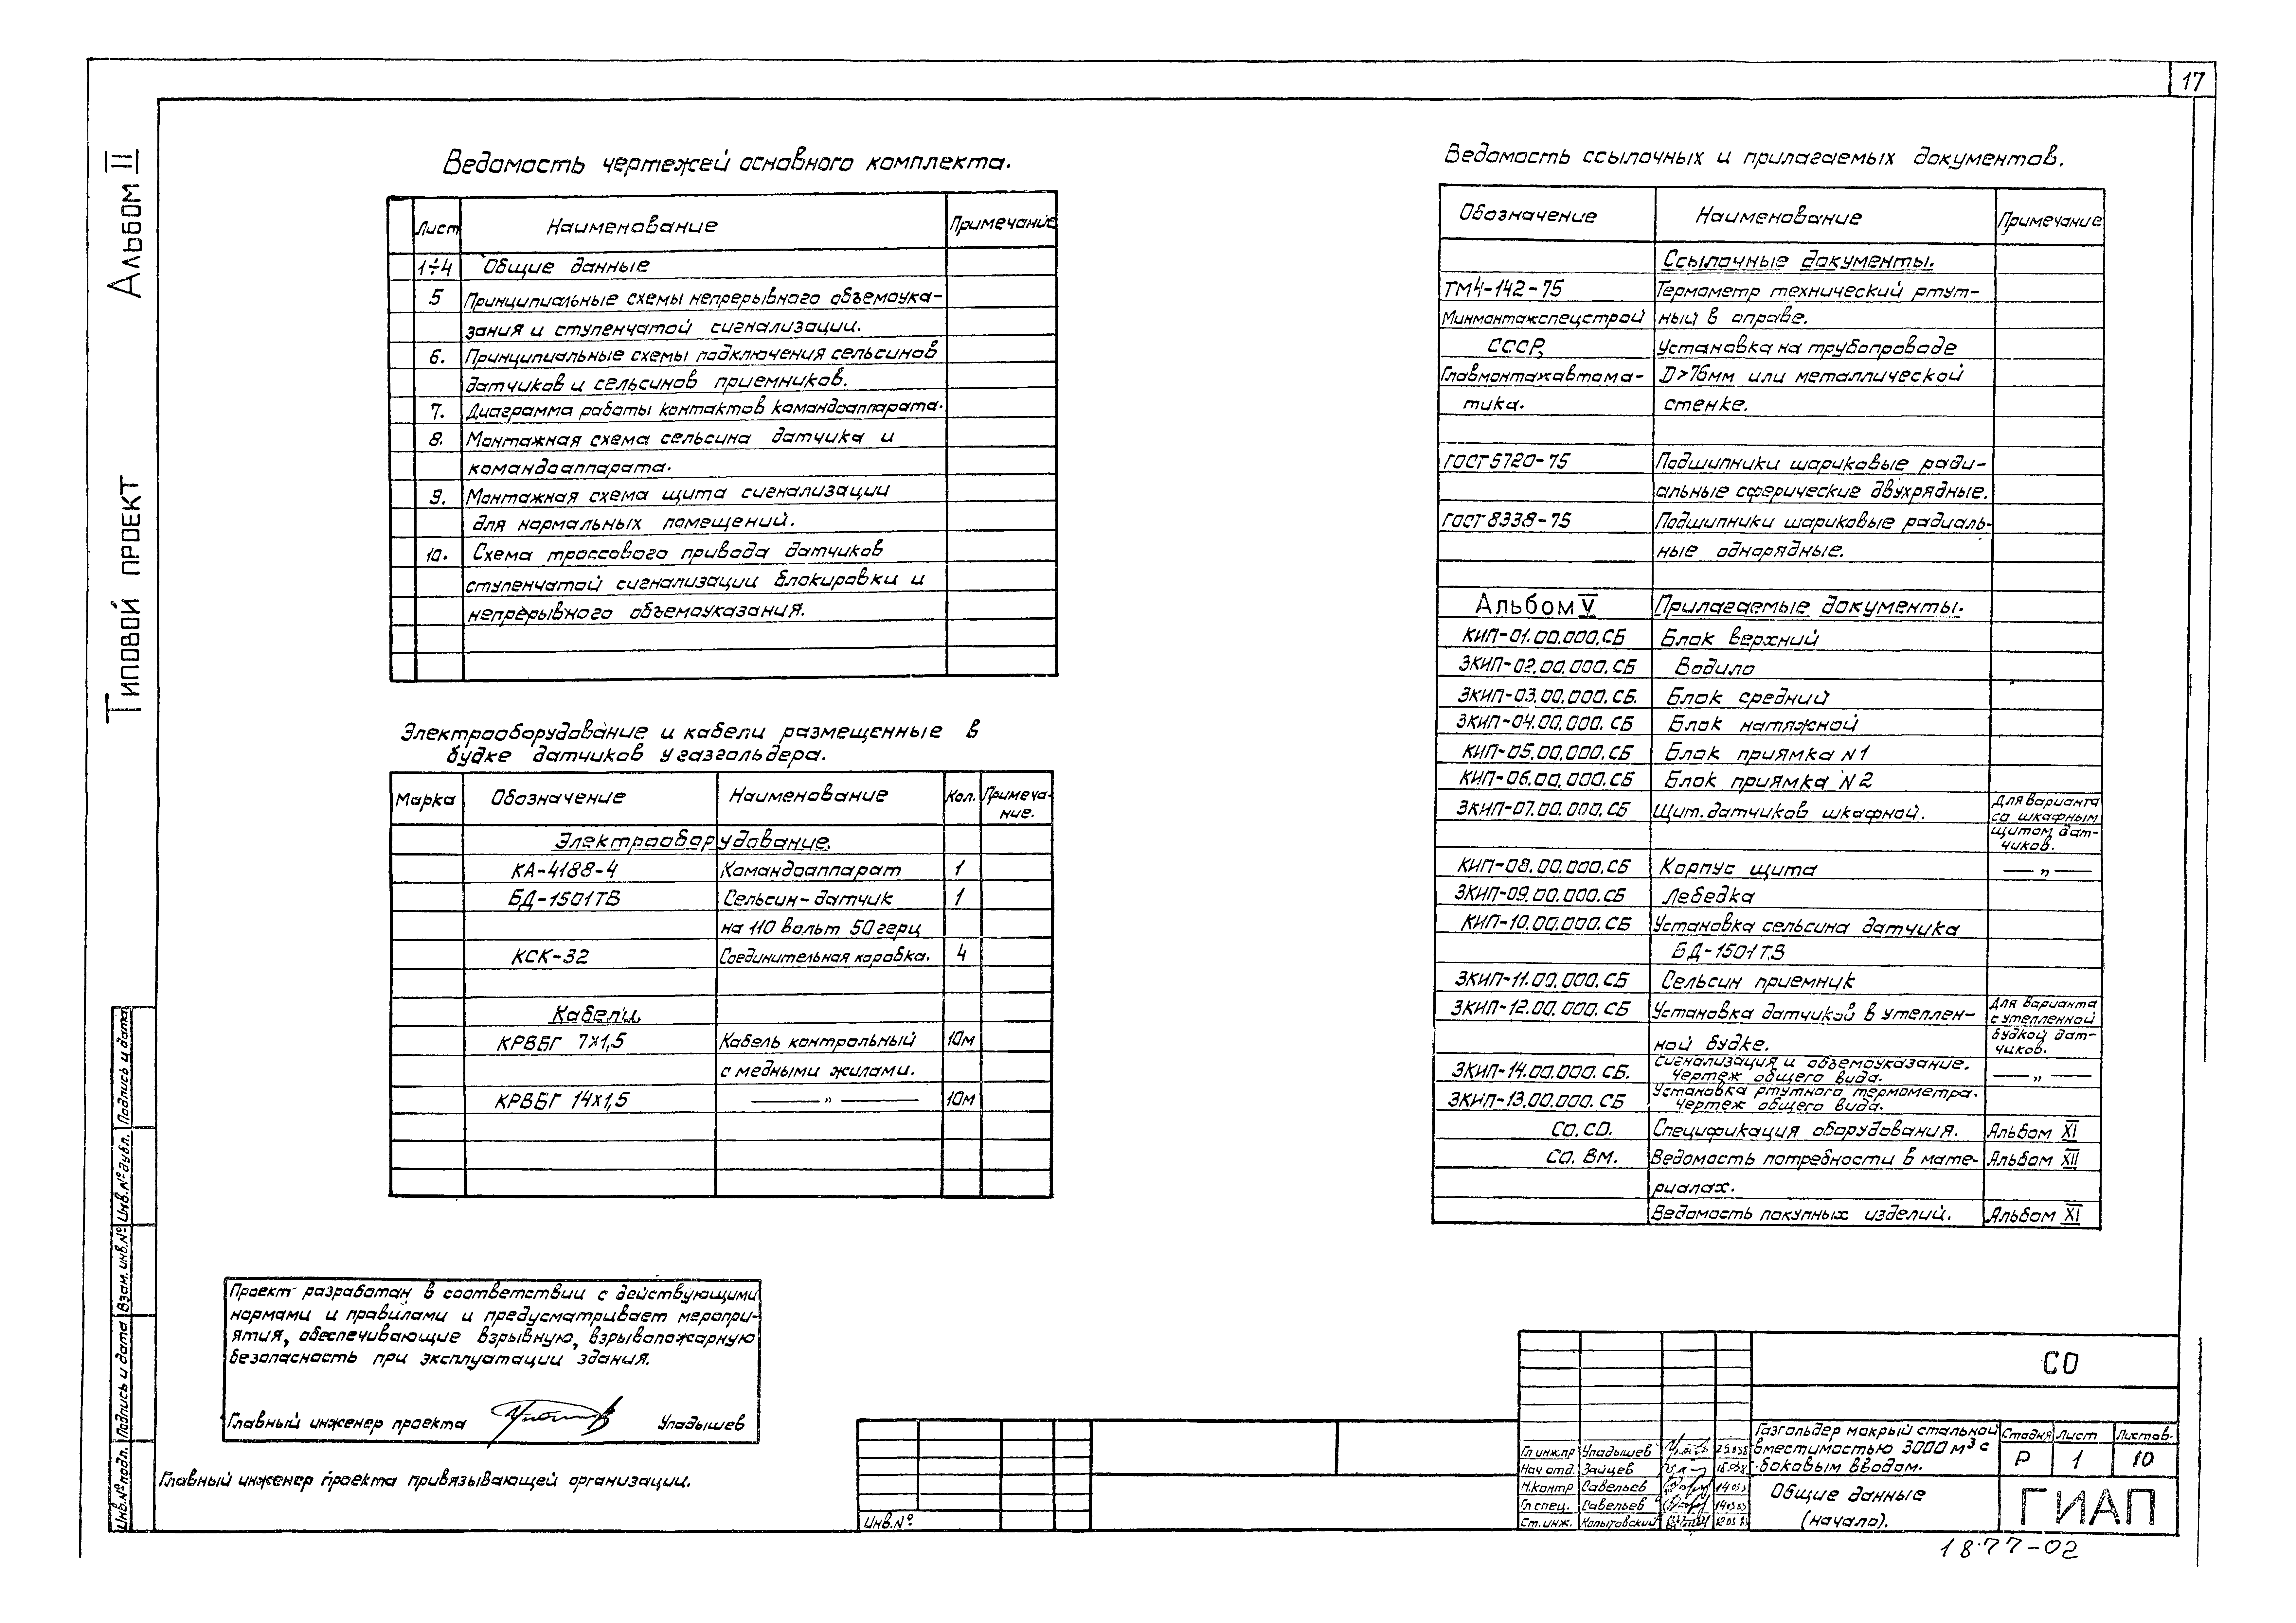 17
Альбом II
Типовой проект
Ведомость чертежей основного комплекта.
Лист Наименование Примечание
1÷4 Общие данные
5 Принципиальные схемы непрерывного объемоука-
зания и ступенчатой сигнализации.
6. Принципиальные схемы подключения сельсинов
датчиков и сельсинов приемников.
7. Диаграмма работы контактов командоаппарата.
8. Монтажная схема сельсина датчика и
командоаппарата.
9. Монтажная схема щита сигнализации
для нормальных помещений.
10. Схема троссового привода датчиков
ступенчатой сигнализации блокировки и
непрерывного объемоуказания.
Электрооборудование и кабели размещенные в
будке датчиков у газгольдера.
Марка Обозначение Наименование Кол. Примеча-
ние.
Электрооборудование.
КА-4188-4 Командоаппарат 1
БД-1501ТВ Сельсин-датчик 1
на 110 вольт 50 герц
КСК-32 Соединительная коробка. 4
Кабели.
КРВБГ 7х1,5 Кабель контрольный 10м
с медными жилами.
КРВБГ 14х1,5 — " — 10м
Ведомость ссылочных и прилагаемых документов.
Обозначение Наименование Примечание
Ссылочные документы.
ТМ4-142-75 Термометр технический ртут-
Минмонтажспецстрой ный в оправе.
СССР, Установка на трубопроводе
Главмонтажавтома- D>76мм или металлической
тика. стенке.
ГОСТ 5720-75 Подшипники шариковые ради-
альные сферические двухрядные.
ГОСТ 8338-75 Подшипники шариковые радиаль-
ные однорядные.
Альбом V Прилагаемые документы.
КИП-01.00.000.СБ Блок верхний
ЗКИП-02.00.000.СБ Водило
ЗКИП-03.00.000.СБ. Блок средний
ЗКИП-04.00.000.СБ Блок натяжной
КИП-05.00.000.СБ Блок приямка N1
КИП-06.00.000.СБ Блок приямка N2
ЗКИП-07.00.000.СБ Щит датчиков шкафной. Для варианта
со шкафным
щитом дат-
чиков.
КИП-08.00.000.СБ Корпус щита — " —
ЗКИП-09.00.000.СБ Лебедка
КИП-10.00.000.СБ Установка сельсина датчика
БД-1501ТВ
ЗКИП-11.00.000.СБ Сельсин приемник
ЗКИП-12.00.000.СБ Установка датчиков в утеплен- Для варианта
с утепленной
ной будке. будкой дат-
чиков.
ЗКИП-14.00.000.СБ. Сигнализация и объемоуказание.
Чертеж общего вида. — " —
ЗКИП-13.00.000.СБ Установка ртутного термометра.
Чертеж общего вида.
СО.СО. Спецификация оборудования. Альбом XI
СО.ВМ. Ведомость потребности в мате- Альбом XII
риалах.
Ведомость покупных изделий. Альбом XI
Проект разработан в соответствии с действующими
нормами и правилами и предусматривает меропри-
ятия, обеспечивающие взрывную, взрывопожарную
безопасность при эксплуатации здания.
Главный инженер проекта Упадышев
Главный инженер проекта привязывающей организации.
Инв.№подл. Подпись и дата Взам.инв.№ Инв.№дубл. Подпись и дата
Инв.№
СО
Гл инж.пр Упадышев
Нач отд. Зайцев
Н.контр Савельев
Гл спец. Савельев
Ст.инж. Копытовский
Газгольдер мокрый стальной
вместимостью 3000 м³ с
боковым вводом.
Стадия Лист Листов.
Р 1 10
Общие данные
(начало).
ГИАП
1877-02